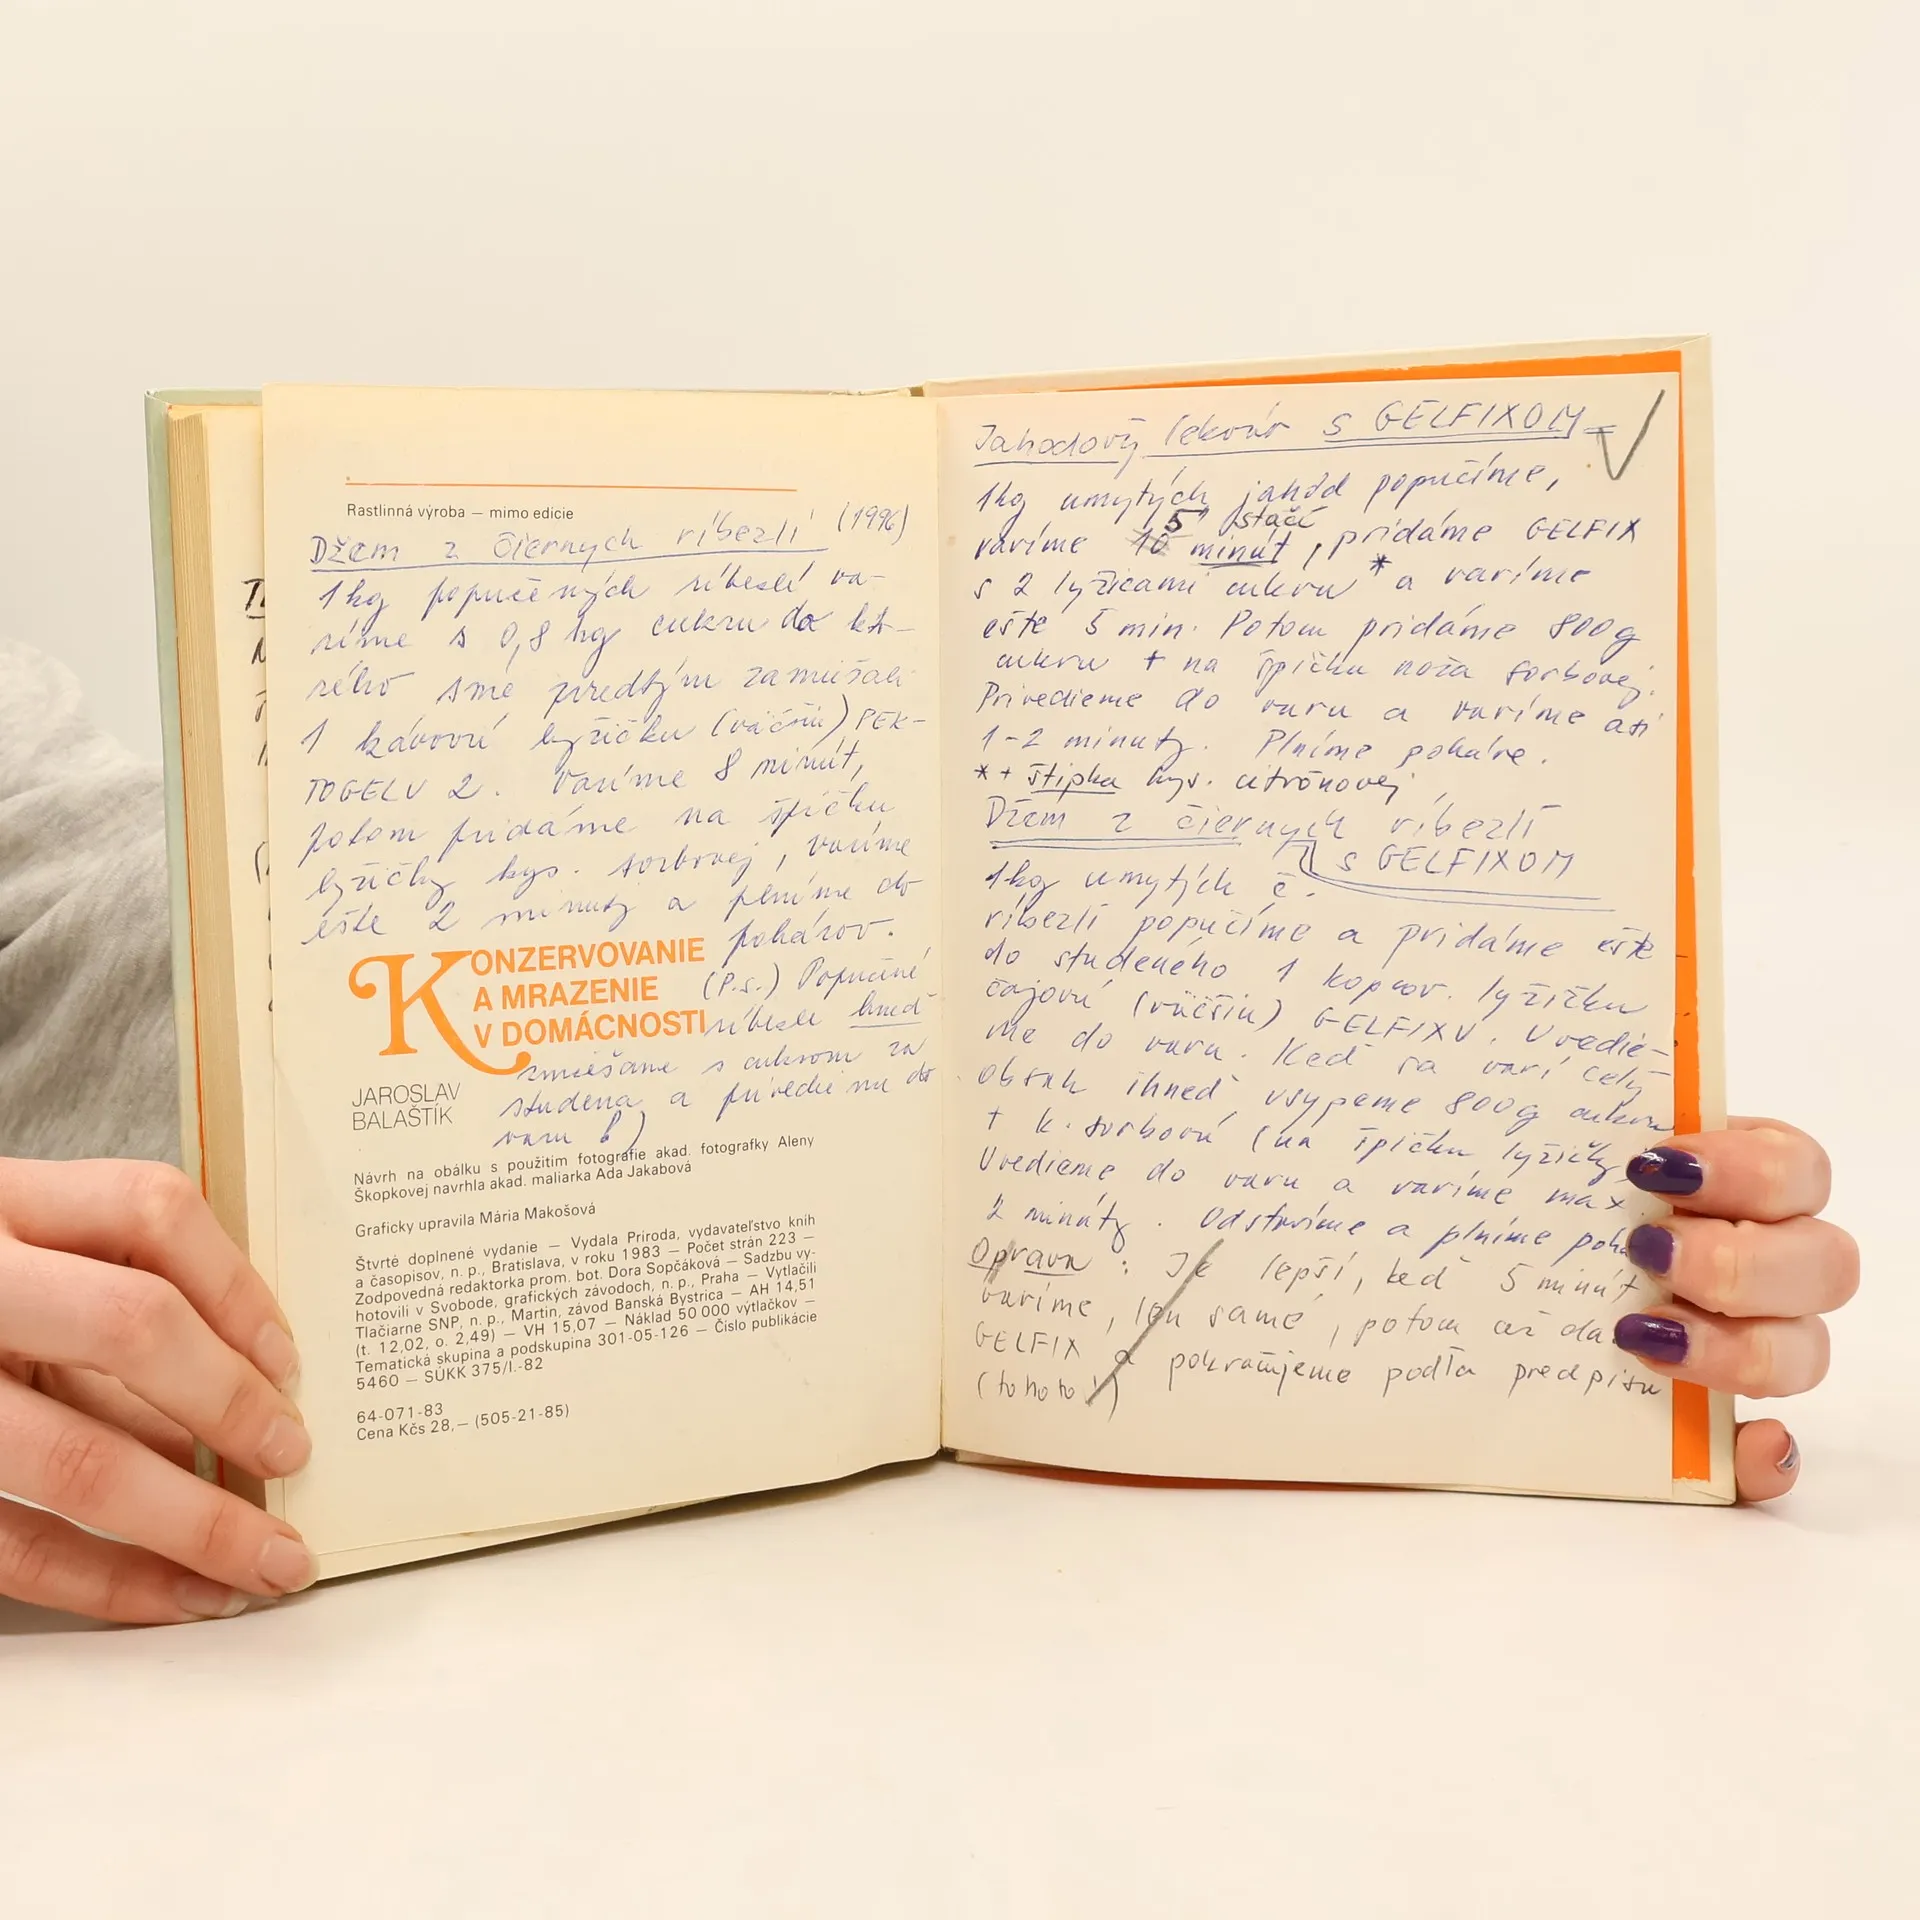 Rastlinná výroba — mimo edície
Džem z čiernych ríbezlí (1996)
1 kg popučených ríbezlí va-
ríme s 0,8 kg cukru do kto-
rého sme predtým zamiešali
1 kávovú lyžičku (väčšiu) PEK-
TOGELU 2. Varíme 8 minút,
potom pridáme na špičku
lyžičky kys. sorbovej, varíme
ešte 2 minuty a plníme do
pohárov.
KONZERVOVANIE
A MRAZENIE
V DOMÁCNOSTI
(P.s.) Popučené
ríbezle hneď
zmiešame s cukrom za
studena a privedieme do
varu
JAROSLAV
BALAŠTÍK
Návrh na obálku s použitím fotografie akad. fotografky Aleny
Škopkovej navrhla akad. maliarka Ada Jakabová
Graficky upravila Mária Makošová
Štvrté doplnené vydanie — Vydala Príroda, vydavateľstvo kníh
a časopisov, n. p., Bratislava, v roku 1983 — Počet strán 223 —
Zodpovedná redaktorka prom. bot. Dora Sopčáková — Sadzbu vy-
hotovili v Svobode, grafických závodoch, n. p., Praha — Vytlačili
Tlačiarne SNP, n. p., Martin, závod Banská Bystrica — AH 14,51
(t. 12,02, o. 2,49) — VH 15,07 — Náklad 50 000 výtlačkov —
Tematická skupina a podskupina 301-05-126 — Číslo publikácie
5460 — SÚKK 375/I.-82
64-071-83
Cena Kčs 28,— (505-21-85)
Jahodový lekvár s GELFIXOM
1kg umytých jahôd popučíme,
5 stačí
varíme 10 minút, pridáme GELFIX
s 2 lyžicami cukru * a varíme
ešte 5 min. Potom pridáme 800g
cukru + na špičku noža sorbovej.
Privedieme do varu a varíme asi
1-2 minuty. Plníme poháre.
* + štipka kys. citrónovej
Džem z čiernych ríbezlí
s GELFIXOM
1kg umytých č.
ríbezlí popučíme a pridáme ešte
do studeného 1 kopcov. lyžičku
čajovú (väčšiu) GELFIXU. Uvedie-
me do varu. Keď sa varí celý
obsah ihneď vsypeme 800g cukru
+ k. sorbovú (na špičku lyžičky
Uvedieme do varu a varíme max.
2 minúty. Odstavíme a plníme pohá
Oprava: Je lepší, keď 5 minút
varíme, len samé, potom až dá
GELFIX a pokračujeme podľa predpisu
(tohoto!)